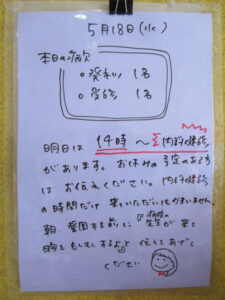 5月18日(水)
本日の病欠
○発熱 1名
○受診 1名
明日は 14時 ～ 内科健診
があります。お休みの予定のある方
はお伝えください。内科健診
の時間だけ来ていただいてもかまいません。
朝、登園する前に「病院の
先生が来て
胸をもしもしするよ」と伝えてあげて
ください